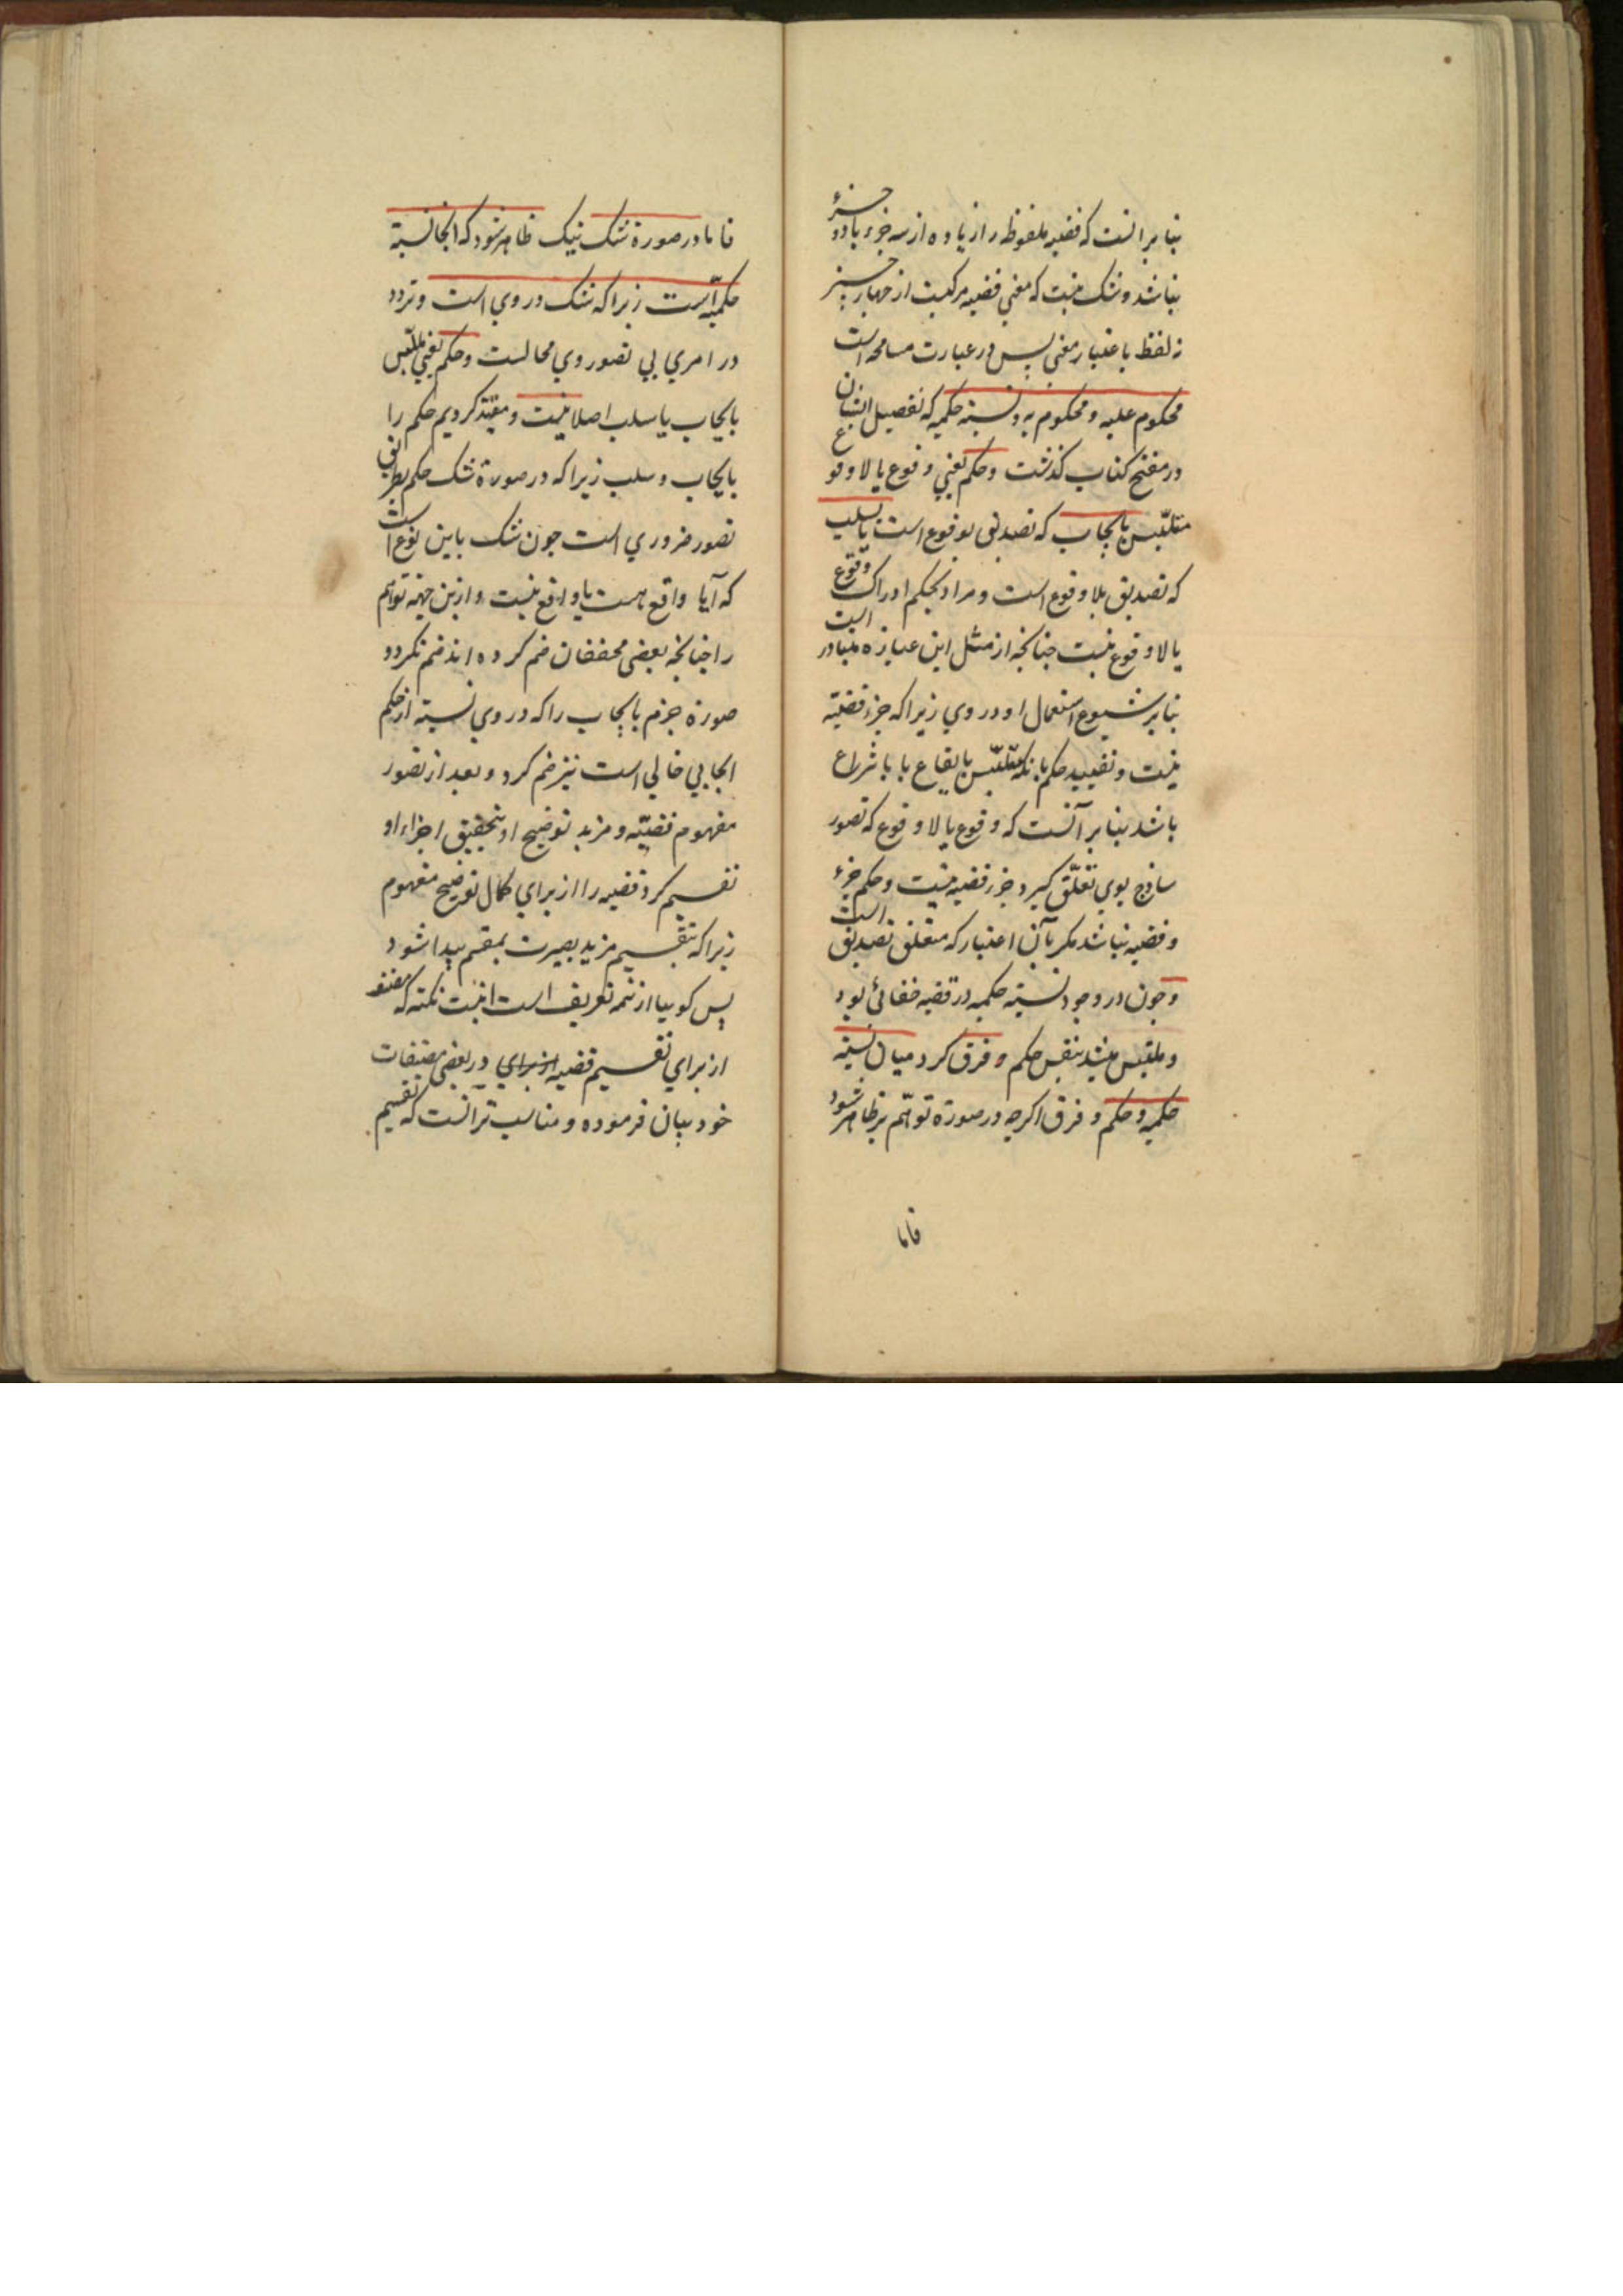 بنا بر انست که قضیه ملفوظه را زیاده از سه جزء یا دو جزء
نباشد و شک نیست که معنی قضیه مرکبست از جهار جیز
نه لفظ باعتبار معنی پس در عبارت مسامحه است
محکوم علیه و محکوم به و نسبته حکمیه که تفصیل ایشان
در مفتح کتاب گذشت و حکم یعنی وقوع یا لا وقوع
متلبّس بایجاب که تصدیق بوقوع است یا بسلب
که تصدیق بلا وقوع است و مراد بحکم ادراک وقوع
یا لا وقوع نیست جنانکه از مثل این عبارة متبادر است
بنا بر شیوع استعمال او در وی زیرا که جزء قضیّه
نیست و تقیید حکم بانکه متلبّس بایقاع یا بانتزاع
باشد بنا بر آنست که وقوع یا لا وقوع که تصور
ساذج بوی تعلّق گیرد جزء قضیه نیست و حکم جزء
و قضیه نباشد مکر بآن اعتبار که متعلق تصدیق است
و جون در وجود نسبته حکمیه در قضیه خفائی بود
و ملتبس میشد بنفس حکم و فرق کرد میان نسبته
حکمیه و حکم و فرق اکرجه در صورة توهّم نیز ظاهر شود
فاما
فاما در صورة شک نیک ظاهر شود که انجا نسبته
حکمیّه است زیرا که شک در وی است و تردد
در امری بی تصور وی محالست و حکم یعنی متلبّس
بایجاب یا سلب اصلا نیست و مقیّد کردیم حکم را
بایجاب و سلب زیرا که در صورة شک حکم بطریق
تصور ضروری است جون شک باین نوع است
که آیا واقع هست یا واقع نیست و ازین جهة توهّم
را جنانجه بعضی محققان ضم کرده اند ضم نکردد
صورة جزم بایجاب را که در وی نسبته از حکم
ایجابی خالی است نیز ضم کرد و بعد از تصور
مفهوم قضیّه و مزید توضیح او بتحقیق اجزاء او
تقسیم کرد قضیه را از برای کمال توضیح مفهوم
زیرا که بتقسیم مزید بصیرت بمقسم پیدا شود
پس کوییا از تتمه تعریف است اینست نکته که مصنف
از برای تقسیم قضیه از برای در بعضی مصنفات
خود بیان فرموده و مناسب تر انست که تقسیم